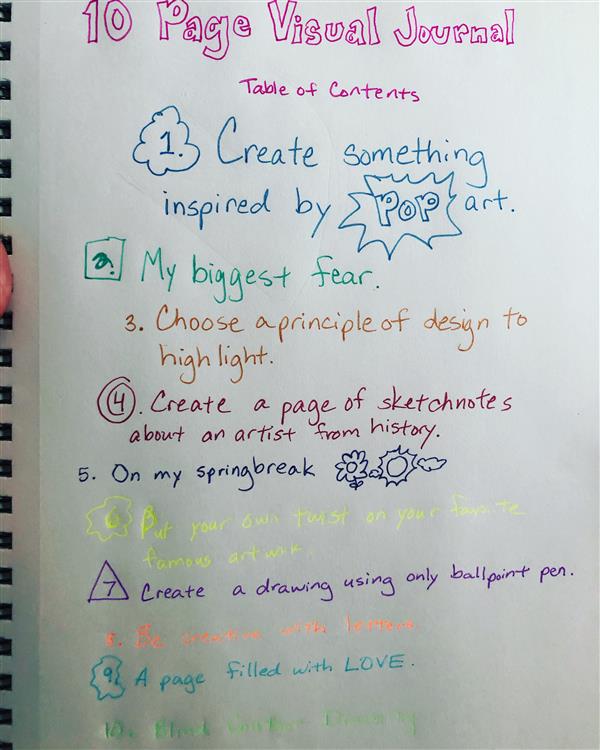 10 Page Visual Journal
Table of Contents
1. Create something
inspired by POP art.
2. My biggest fear.
3. Choose a principle of design to
highlight.
4. Create a page of sketchnotes
about an artist from history.
5. On my springbreak
6. Put your own twist on your favorite
famous artwork.
7 Create a drawing using only ballpoint pen.
8. Be creative with letters.
9. A page filled with LOVE.
10. Blind Contour Drawing